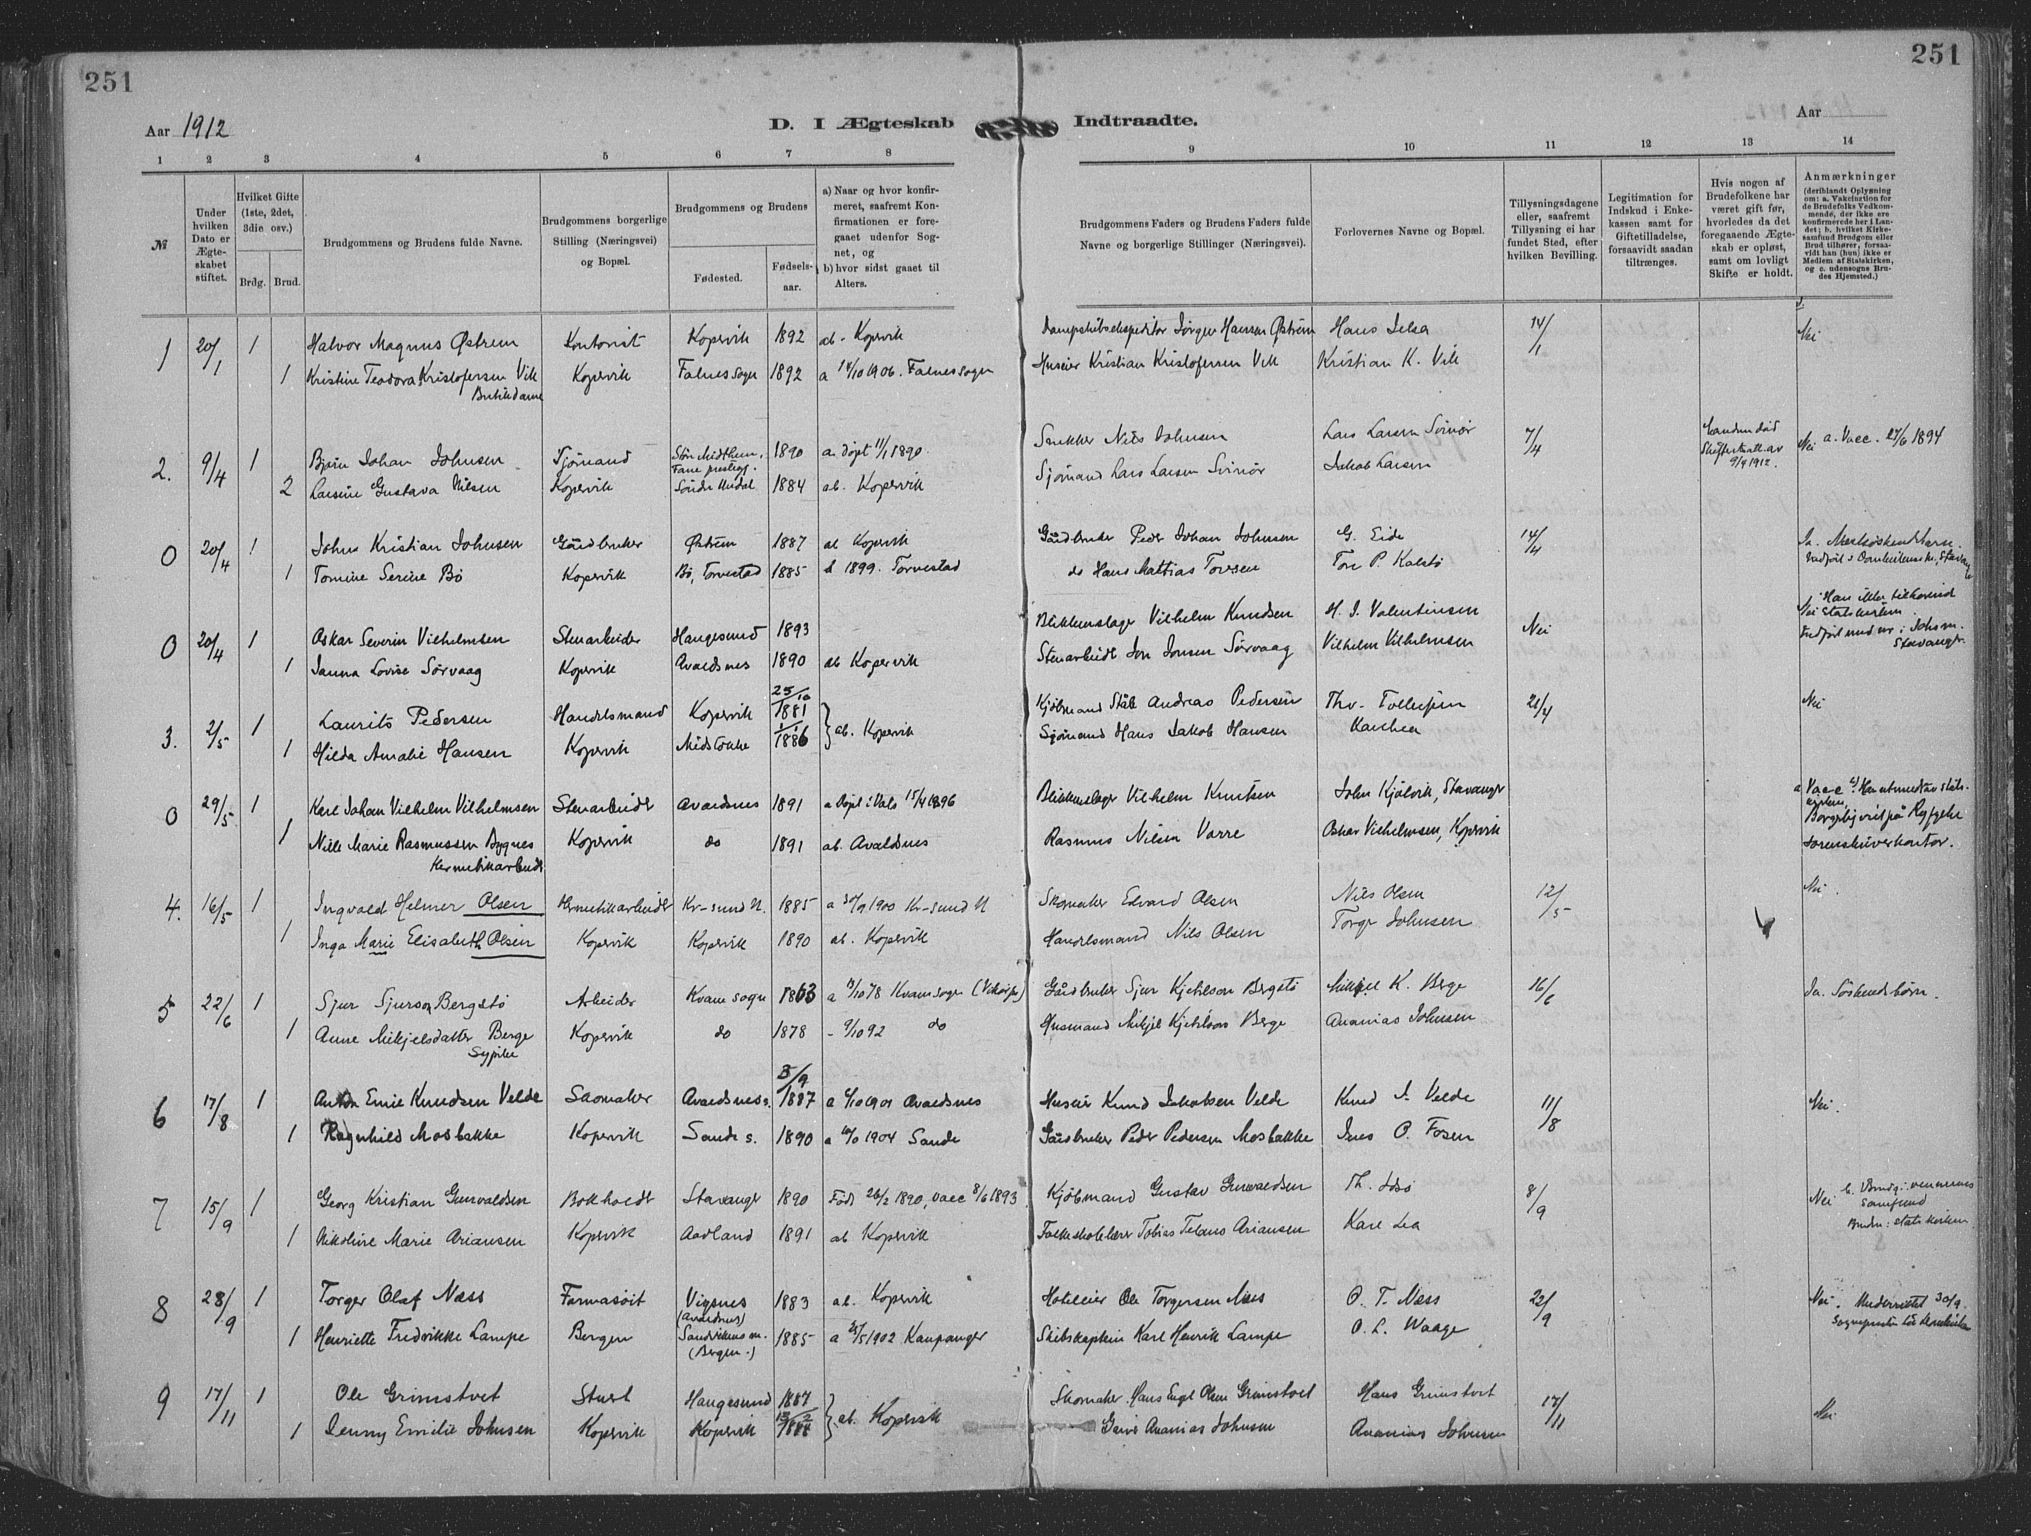 251
251
Aar 1912
D. I Ægteskab Indtraadte.
Aar
1 2 3 4 5 6 7 8 9 10 11 12 13 14
№
Under hvilken Dato er Ægteskabet stiftet.
Hvilket Gifte (1ste, 2det, 3die osv.)
Brdg. Brud.
Brudgommens og Brudens fulde Navne.
Brudgommens borgerlige Stilling (Næringsvei) og Bopæl.
Brudgommens og Brudens
Fødested. Fødselsaar.
a) Naar og hvor konfirmeret, saafremt Konfirmationen er foregaaet udenfor Sognet, og
b) hvor sidst gaaet til Alters.
Brudgommens Faders og Brudens Faders fulde Navne og borgerlige Stillinger (Næringsvei).
Forlovernes Navne og Bopæl.
Tillysningsdagene eller, saafremt Tillysning ei har fundet Sted, efter hvilken Bevilling.
Legitimation for Indskud i Enkekassen samt for Giftetilladelse, forsaavidt saadan tiltrænges.
Hvis nogen af Brudefolkene har været gift før, hvorledes da det foregaaende Ægteskab er opløst, samt om lovligt Skifte er holdt.
Anmærkninger
(deriblandt Oplysning om: a. Vakcination for de Brudefolks Vedkommende, der ikke ere konfirmerede her i Landet; b. hvilket Kirkesamfund Brudgom eller Brud tilhører, forsaavidt han (hun) ikke er Medlem af Statskirken, og c. udensogns Brudes Hjemsted.)
1 20/1 1 Halvor Magnus Østrem Kontorist Kopervik 1892 ab. Kopervik Dampskibsekspeditør Jørgen Hansen Østrem Hans Jelsa 14/1 Nei
1 Kristine Teodora Kristofersen Vik Kopervik Falnes sogn 1892 a 14/10 1906. Falnes sogn Huseier Kristian Kristofersen Vik Kristian K. Vik
Butikdame
2. 9/4 1 Bjørn Johan Johnsen Sjømand 1890 a. Døpt 11/1 1890 Snekker Nils Johnsen Lars Larsen Svinør 7/4 Nei a. Vacc. 27/6 1894
9/4 1912.
2 Larsine Gustava Nilsen Kopervik 1884 ab. Kopervik Sjømand Lars Larsen Svinør Jakob Larsen
0 20/4 1 John Kristian Johnsen Gårdbruker Østrem 1887 ab Kopervik Gårdbruker Peder Johan Johnsen G. Eide 14/4
1 Tomine Serine Bø Kopervik Bø, Torvestad 1885 1899. Torvestad do Hans Mattias Torsen Tore P. Kalstø
0 20/4 1 Oskar Severin Vilhelmsen Stenarbeider Haugesund 1893 Blikkenslager Vilhelm Knudsen H. J. Valentinsen Nei
Statskirken.
Stavanger
1 Janna Lovise Sørvaag Kopervik Avaldsnes 1890 ab Kopervik Stenarbeider Jon Jonsen Sørvaag Vilhelm Vilhelmsen
3. 2/5 1 Laurits Pedersen Handelsmand Kopervik 25/10 1881 ab. Kopervik Kjøbmand Ståle Andreas Pedersen Thv. Tollefsen 21/4 Nei
1 Hilda Amalie Hansen Kopervik Midstokke 1/1 1886 Sjømand Hans Jakob Hansen
0 29/5 1 Karl Johan Vilhelm Vilhelmsen Stenarbeider Avaldsnes 1891 a Døpt 15/4 1896 Blikkenslager Vilhelm Knutsen John Kjølvik, Stavanger Vacc
1 Nille Marie Rasmussen Bygnes Kopervik do 1891 ab. Avaldsnes Rasmus Nilsen Varre Oskar Vilhelmsen, Kopervik Sorenskriverkontor.
Hermetikkarbeider
4. 16/5 1 Ingvald Helmer Olsen Hermetikkarbeider Kr-sund N. 1885 a 30/9 1900 Kr-sund N Skomaker Edvard Olsen Nils Olsen 12/5 Nei
1 Inga Marie Elisabeth Olsen Kopervik Kopervik 1890 ab. Kopervik Handelsmand Nils Olsen Torger Johnsen
5 22/6 1 Sjur Sjurson Bergstø Arbeider Kvam sogn 1863 a 13/10 78 Kvam sogn Gårdbruker Sjur Kjetilson Bergstø Mikkjel K. Berge 16/6 Ja. Søskendebørn.
1 Anne Mikjelsdatter Berge Kopervik do 1878 - 9/10 92 do Husmand Mikjel Kjetilson Berge Ananias Johnsen
Sypike
6 17/8 1 Anton Emil Knudsen Velde Skomaker Avaldsnes s. 3/9 1887 a 6/10 1901 Avaldsnes Huseier Knud Jakobsen Velde Knud J. Velde 11/8 Nei.
1 Ragnhild Mosbakke Kopervik Sande s. 1890 1904 Sande Gårdbruker Peder Pedersen Mosbakke Jens O. Fosen
7 15/9 1 Georg Kristian Gunvaldsen Bokholdt Stavanger 1890 Født 26/2 1890, vacc 8/6 1893 Kjøbmand Gustav Gunvaldsen Th. Idsø 8/9 Nei b. Brudg: vennernes Samfund
Bruden: statskirken
1 Nikoline Marie Ariansen Kopervik Aadland 1891 ab Kopervik Folkeskolelærer Tobias Ariansen Karl Lea
8 28/9 1 Torger Olaf Næss Farmasøit Vigsnes (Avaldsnes) 1883 ab. Kopervik Hoteleier Ole Torgersen Næss O. T. Næss 22/9 Nei. Underrettet 30/9.
1 Henriette Fredrikke Lampe Bergen Sandvikens m. (Bergen.) 1885 1902 Kaupanger Skibskaptein Karl Henrik Lampe O. L. Waage
9 17/11 1 Ole Grimstvet Haugesund 1887 ab. Kopervik Skomaker Hans Engel Olsen Grimstvet Hans Grimstvet 17/11 Nei
1 Jenny Emilie Johnsen Kopervik Kopervik Ananias Johnsen Ananias Johnsen